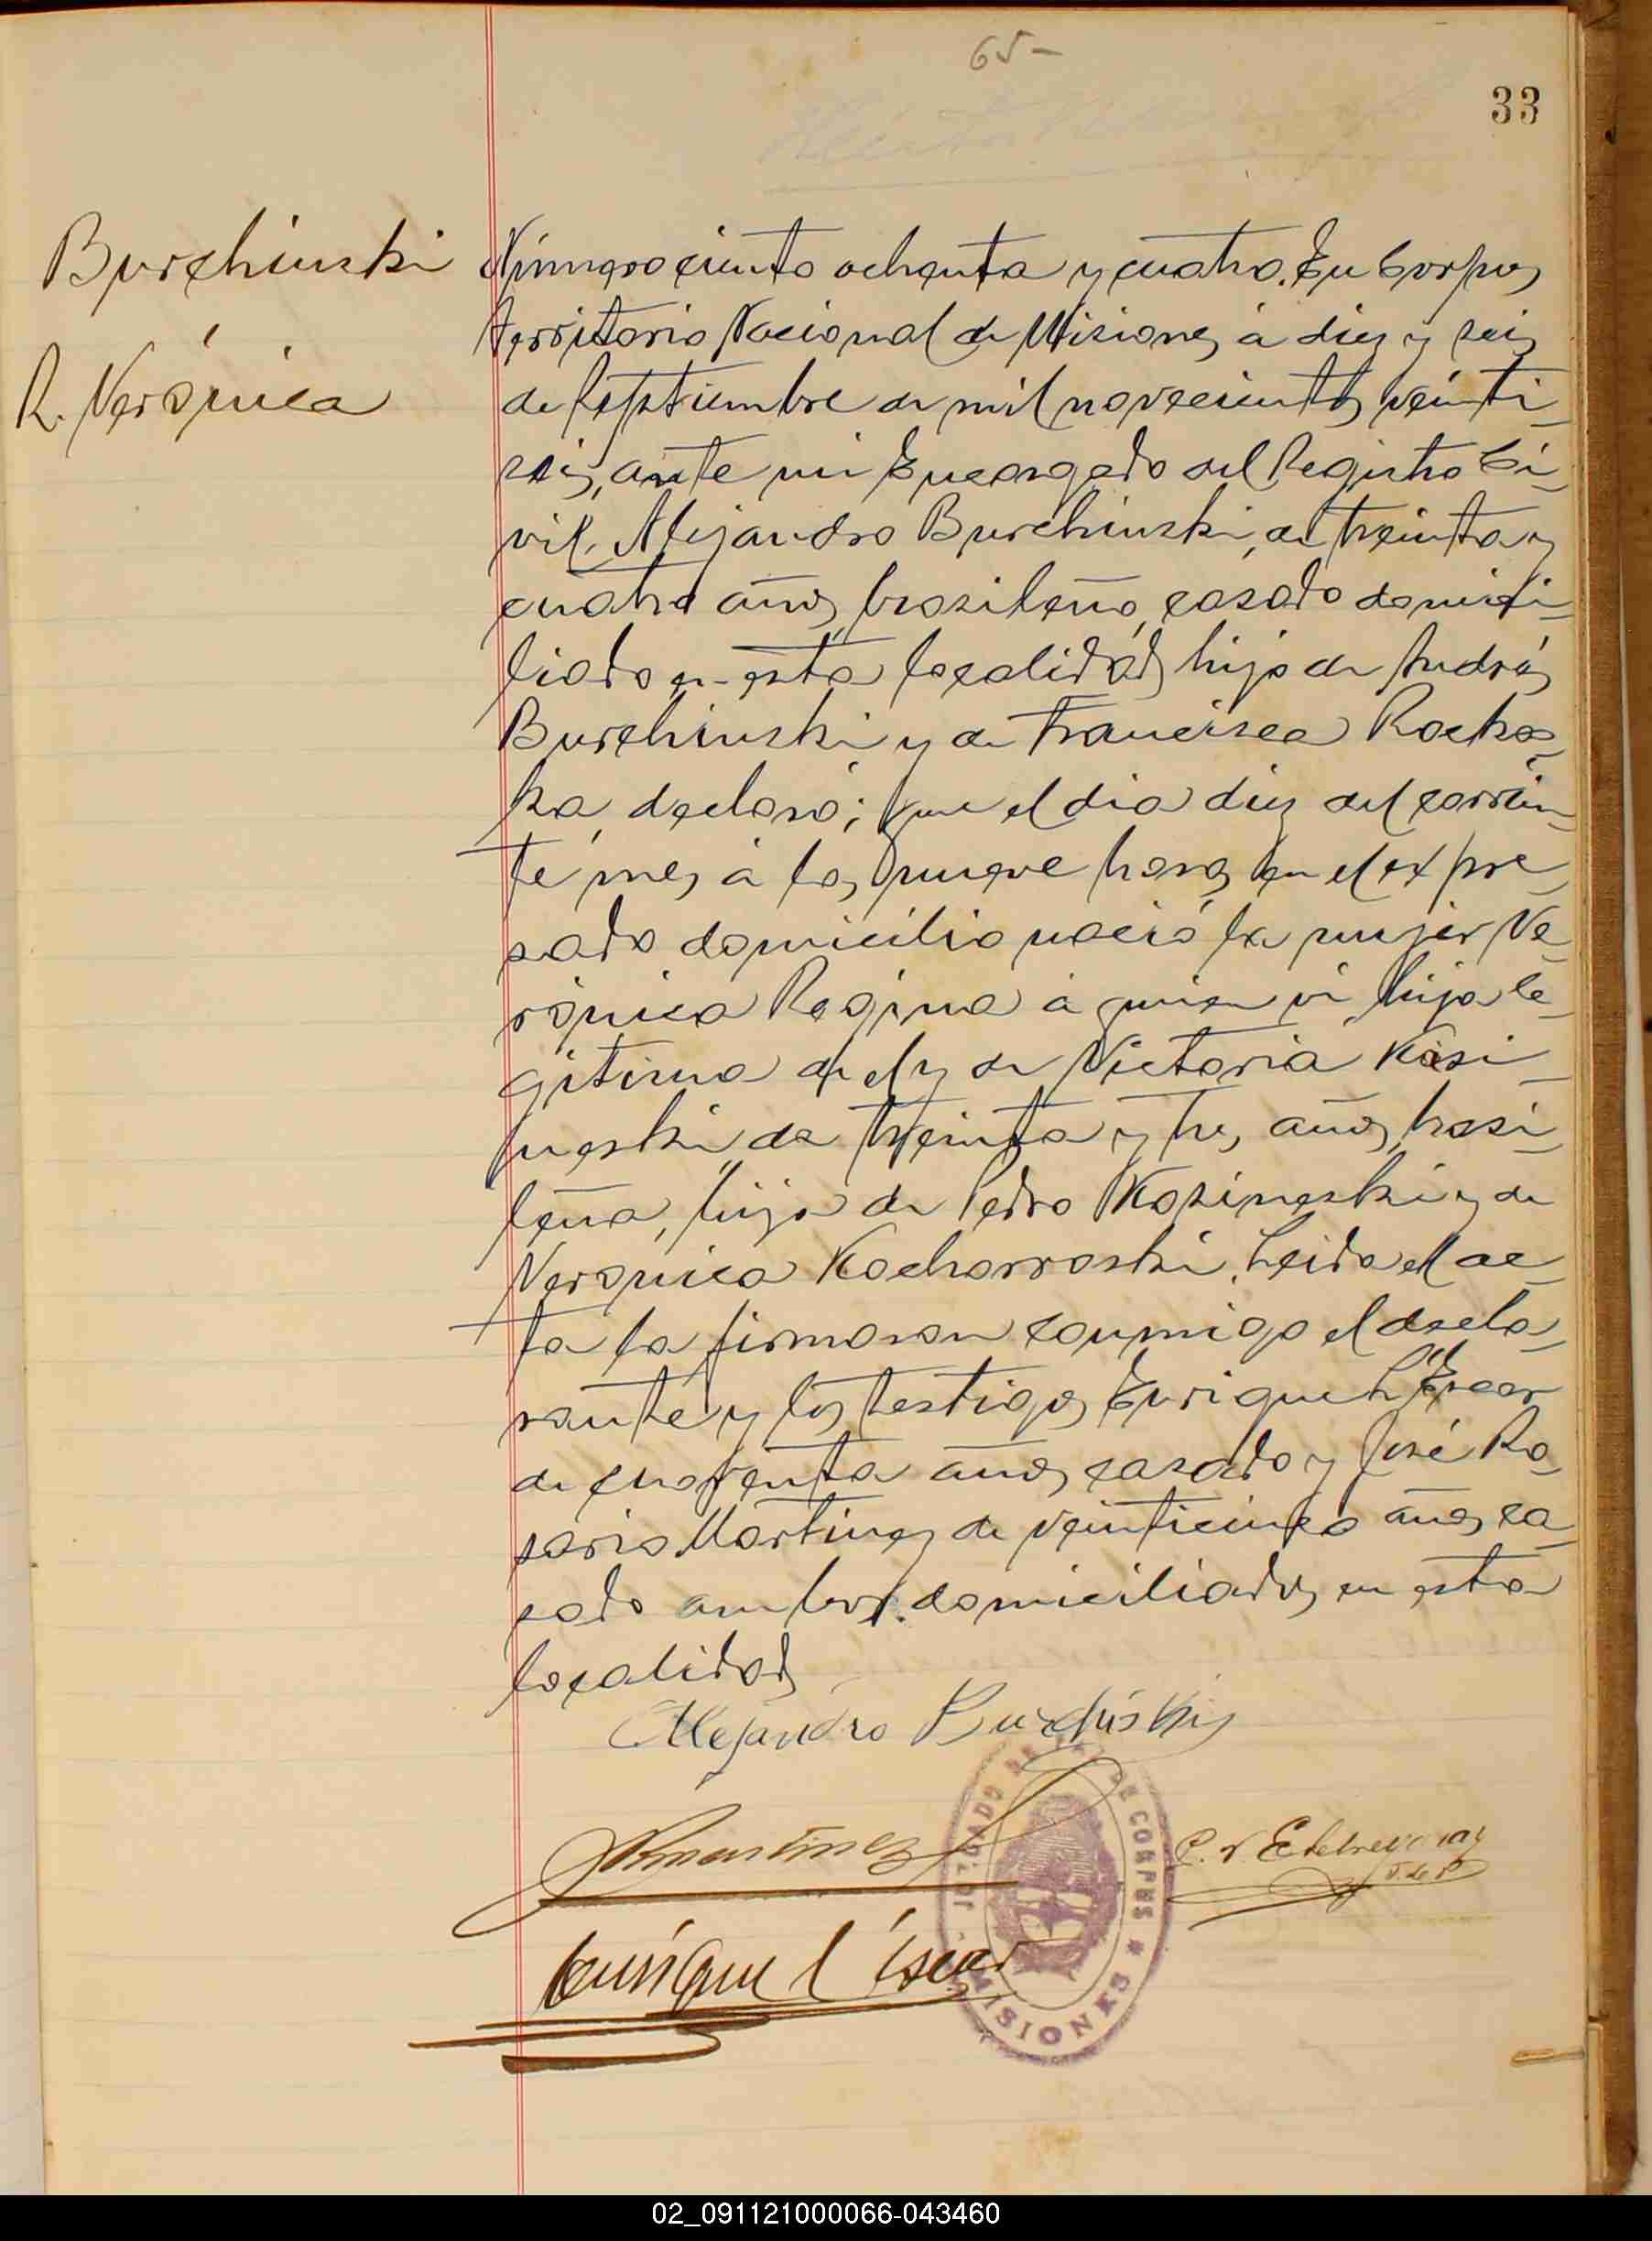 65-
33
Burchinski
R. Verónica
Número ciento ochenta y cuatro. En Corpus
Territorio Nacional de Misiones, á diez y seis
de Septiembre de mil novecientos veinti-
seis, ante mi Encargado del Registro Ci-
vil, Alejandro Burchinski, de treinta y
cuatro años, brasileño, casado domici-
liado en esta localidad, hijo de Andrés
Burchinski y de Francisca
ka, declaró; Que el dia diez del corrien-
te mes á las nueve horas en el expre-
sado domicilio nació la mujer Ve-
rónica Regina á quien vi hija le-
gitima de el y de Victoria Kosi-
neski de treinta y tres años, brasi-
leña, hija de Pedro Kosineski y de
Veronica Kocharroski. Leida el ac-
ta la firmaron conmigo el decla-
rante y los testigos Enrique L'Escar
de cuarenta años, casado y José Ro-
sario Martinez de veinticinco años, ca-
sado ambos domiciliados en esta
localidad
Alejandro
Rmartinez
Enrique l'éscar
JUZGADO DE PAZ DE CORPUS
* MISIONES *
02_091121000066-043460